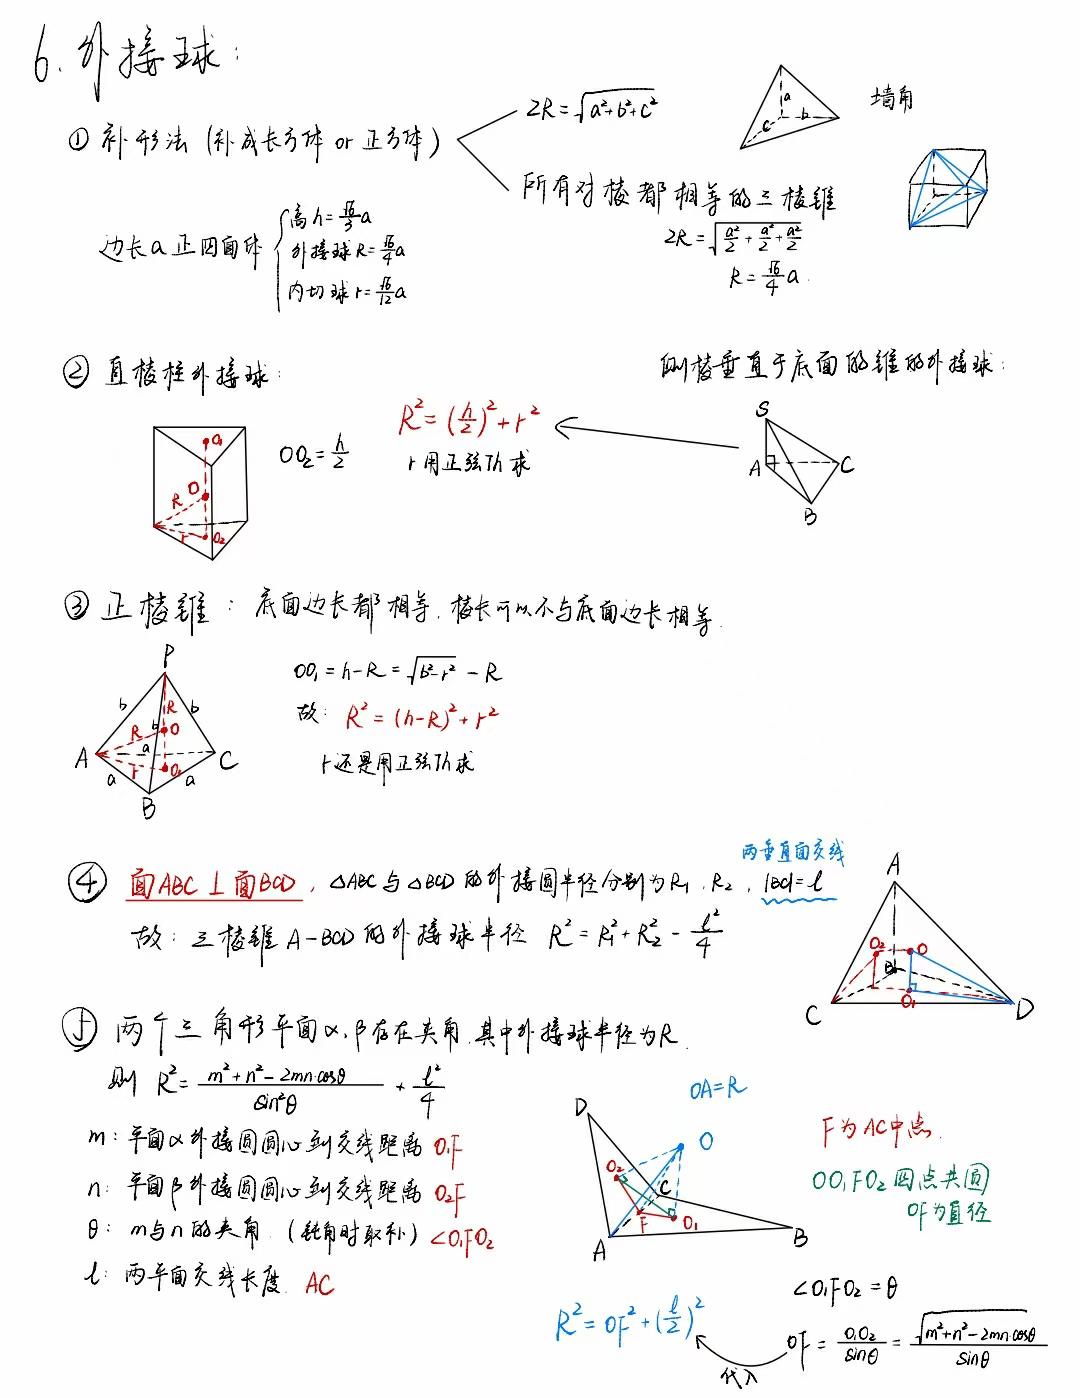 6. 外接球:
① 补形法 (补成长方体 or 正方体)
2R=√(a²+b²+c²)
a
b
c
墙角
所有对棱都相等的三棱锥
2R=√(a²/2+a²/2+a²/2)
R=√6/4 a.
边长a正四面体
高h=√6/3 a
外接球R=√6/4 a
内切球r=√6/12 a
② 直棱柱外接球:
侧棱垂直于底面的锥的外接球:
O₁
O
R
r
O₂
OO₂=h/2
R²=(h/2)²+r²
r用正弦Th求
S
A
C
B
③ 正棱锥: 底面边长都相等.棱长可以不与底面边长相等.
P
b
b
b
R
R
O
a
A
C
r
O₁
a
a
B
OO₁=h-R=√(b²-r²)-R
故: R²=(h-R)²+r²
r还是用正弦Th求
④ 面ABC⊥面BCD, △ABC与△BCD的外接圆半径分别为R₁.R₂, |BC|=l
两垂直面交线
故: 三棱锥A-BCD的外接球半径 R²=R₁²+R₂²-l²/4
A
O₂
O
B
O₁
C
D
⑤ 两个三角形平面α,β存在夹角.其中外接球半径为R.
则 R²=(m²+n²-2mn·cosθ)/sin²θ + l²/4
m: 平面α外接圆圆心到交线距离 O₁F
n: 平面β外接圆圆心到交线距离 O₂F
θ: m与n的夹角.(钝角时取补) ∠O₁FO₂
l: 两平面交线长度. AC
OA=R
D
O
O₂
C
F
O₁
A
B
F为AC中点.
OO₁FO₂四点共圆
OF为直径
∠O₁FO₂=θ
R²=OF²+(l/2)²
代入
OF=O₁O₂/sinθ=√(m²+n²-2mn·cosθ)/sinθ